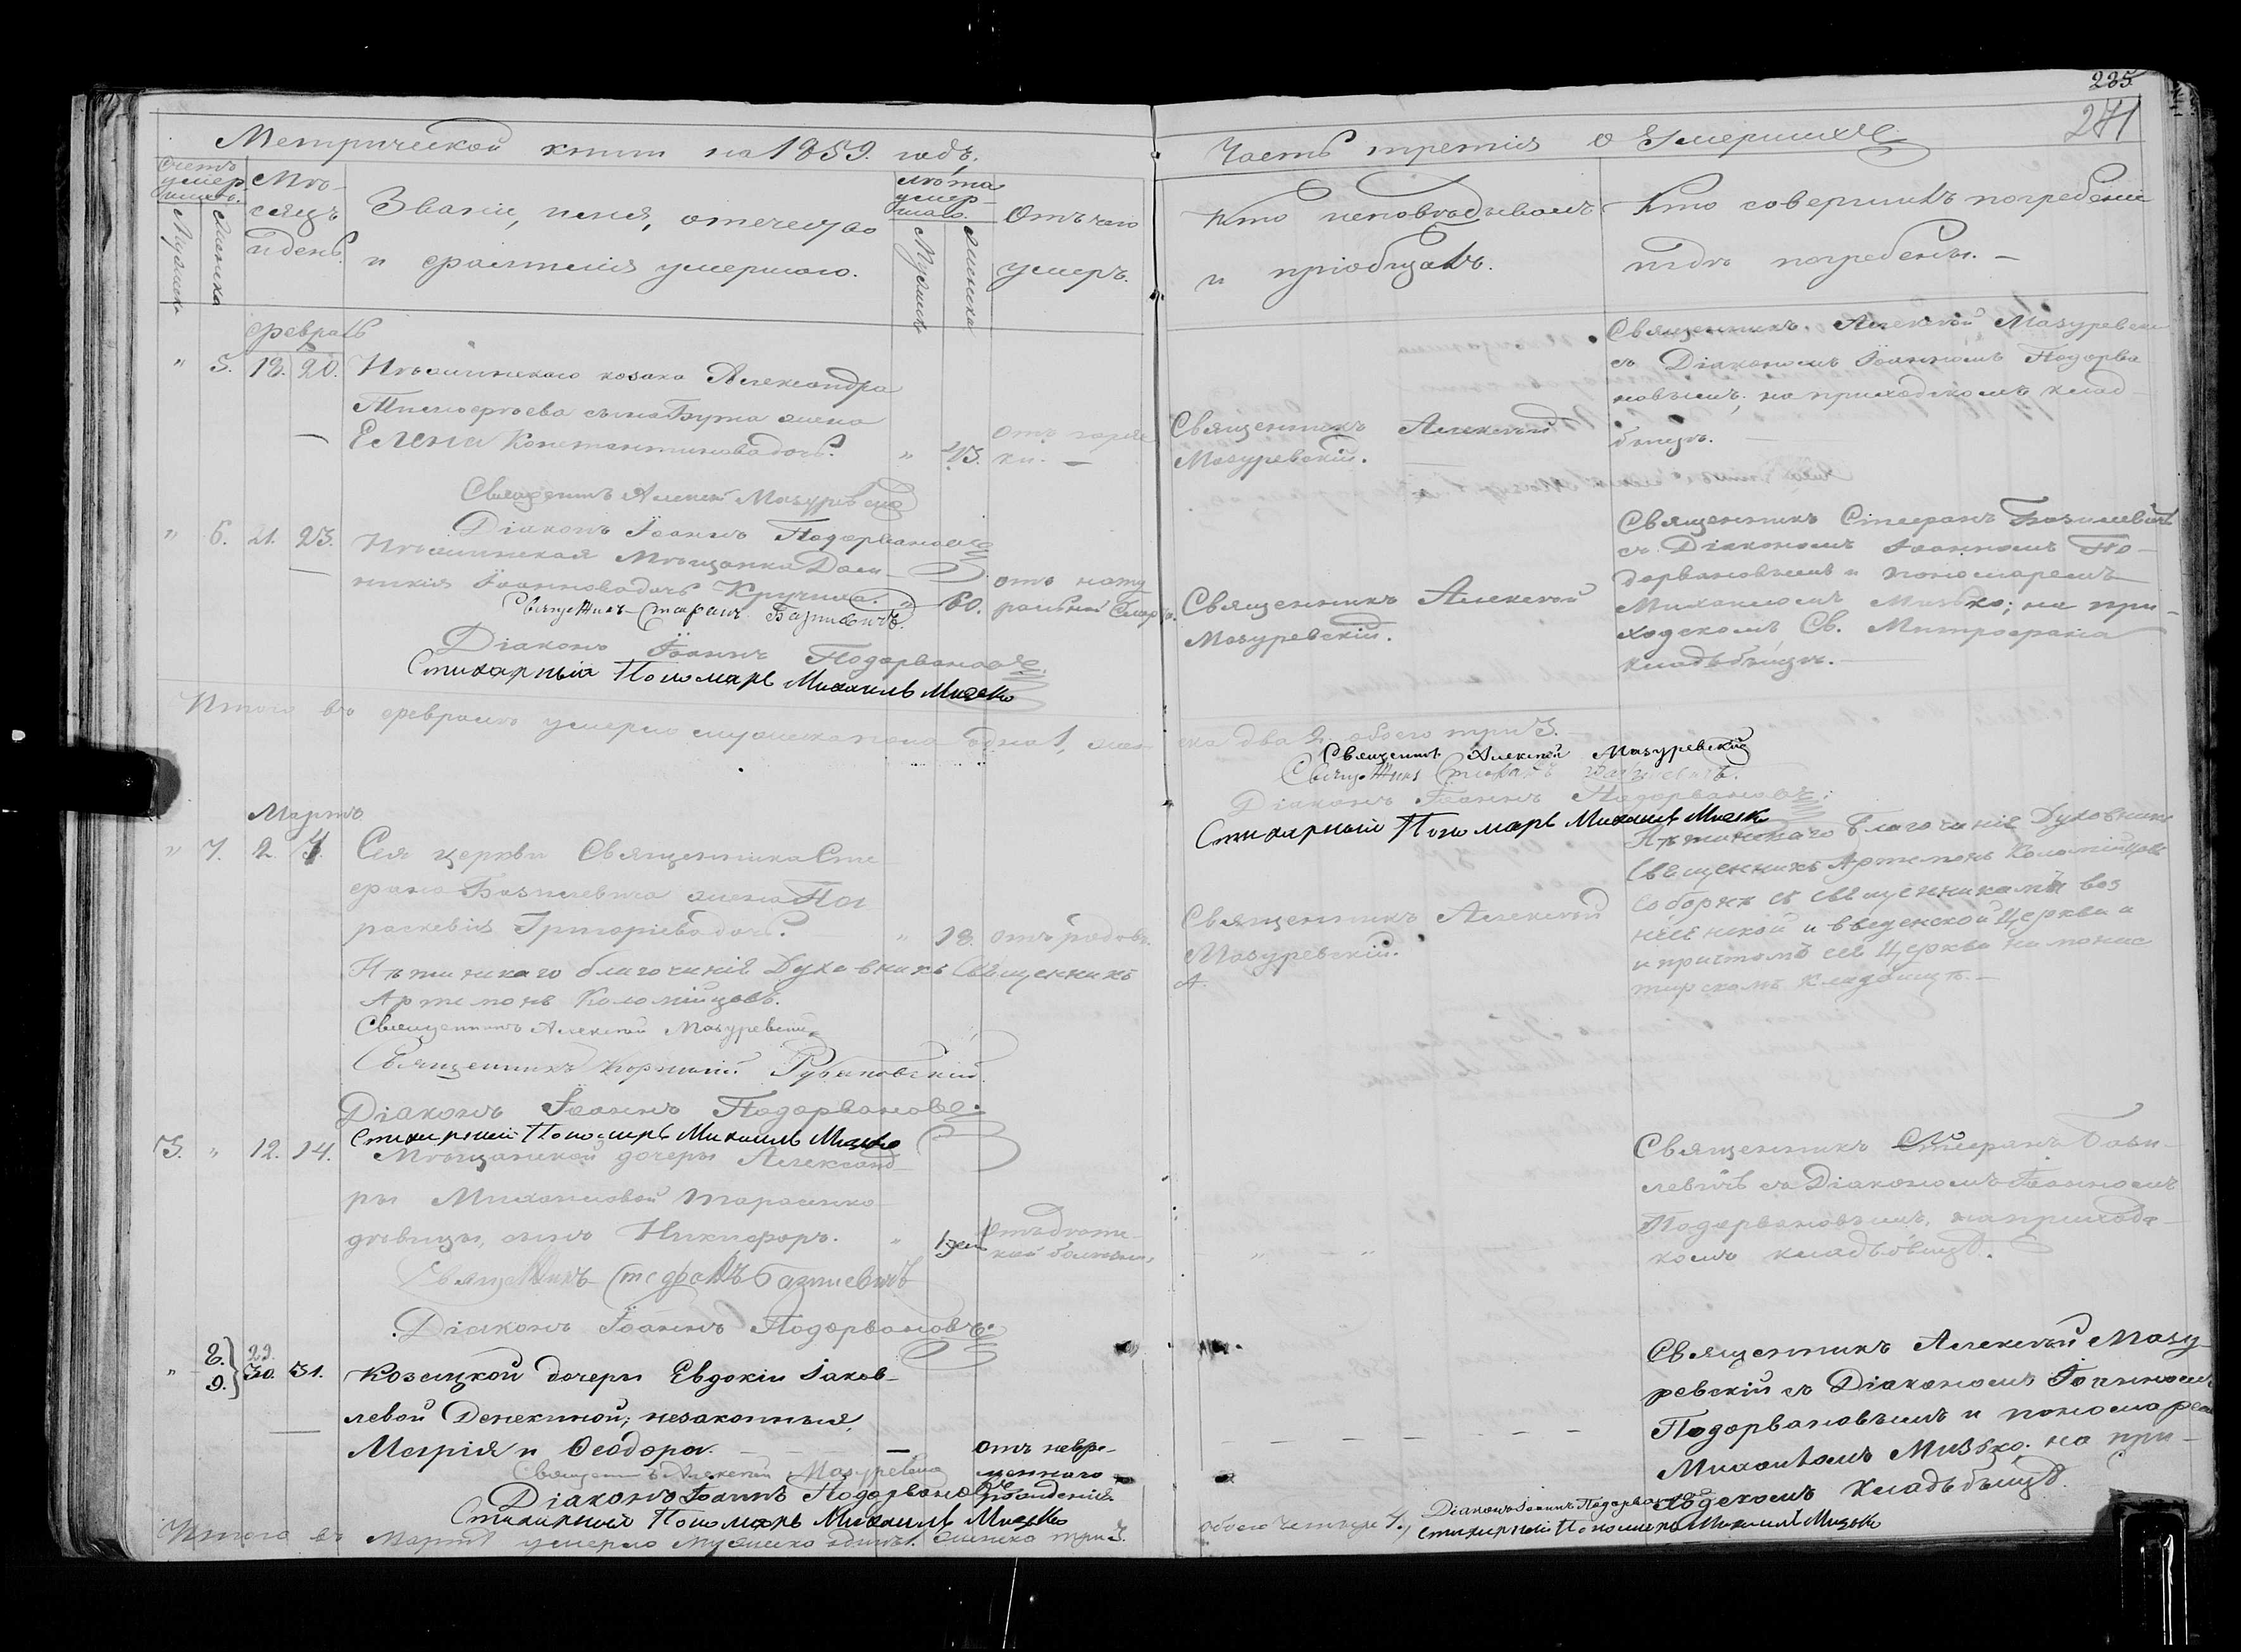 285
271
Метрической книги на 1859. годъ.
Часть третія о Умершихъ
Счетъ умершихъ.
Мужеска
Женска
Мѣсяцъ и день.
Званіе, имя, отечество
и фамилія умершаго.
Лѣта умершаго.
Мужеска
Женска
Отъ чего
умеръ.
Кто исповѣдывалъ
и пріобщалъ.
Кто совершилъ погребеніе
и гдѣ погребены. —
Февраль
" 5. 18. 20. Нѣжинскаго козака Александра
Тимофѣева сына Бута жена
Елена Константинова дочь. " 43. отъ горяч
ки. —
Священникъ Алексѣй
Мазуревскій.
Священникъ Алексѣй Мазуревскій
съ Діакономъ Іоанномъ Подорва
новымъ; на приходскомъ клад
бищѣ. —
Священникъ Алексѣй Мазуревскій
Діаконъ Іоаннъ Подорвановъ
" 6. 21. 23. Нѣжинская Мѣщанка Дом-
никія Іоаннова дочь Кручиха. " 60. отъ нату
ральной смерти.
Священникъ Алексѣй
Мазуревскій.
Священникъ Стефанъ Базилевичъ
съ Діакономъ Іоанномъ По-
дорвановымъ и пономаремъ
Михаиломъ Мизько; на при-
ходскомъ Св. Митрофанія
кладьбищѣ. —
Священникъ Стефанъ Базилевичъ.
Діаконъ Іоаннъ Подорвановъ
Стихарный Пономарь Михаилъ Мизько
Итого въ февралѣ умерло мужеска пола одна 1, жен-
ска два 2. обоего три 3. —
Священникъ Алексѣй Мазуревскій
Священникъ Стефанъ Базилевичъ.
Діаконъ Іоаннъ Подорвановъ.
Стихарный Пономарь Михаилъ Мизько
Мартъ
" 7. 2. 4. Сея церкви Священника Сте-
фана Базилевича жена Па-
раскевія Григоріева дочь. " 18. отъ родовъ.
Священникъ Алексѣй
Мазуревскій.
Нѣжинскаго благочинія Духовникъ
Священникъ Артемонъ Коломійцовъ
соборнѣ съ священниками воз
несенской и введенской Церкви и
и причтомъ сей Церкви на монас
тирскомъ кладбищѣ. —
Нѣжинскаго благочинія Духовникъ Священникъ
Артемонъ Коломійцовъ.
Священникъ Алексѣй Мазуревскій
Священникъ Корнилій Рубановскій.
Діаконъ Іоаннъ Подорвановъ.
Стихарный Пономарь Михаилъ Мизько
3. " 12. 14. Мѣщанской дочери Александ-
ры Михаиловой Тарасенко
дѣвицы, сынъ Никифоръ. " 1 ден отъ дѣтс-
кой болѣзни.
Священникъ Стефанъ Бази-
левичъ съ Діакономъ Іоанномъ
Подорвановымъ, на приходс-
комъ кладьбищѣ.
Священникъ Стефанъ Базилевичъ
Діаконъ Іоаннъ Подорвановъ.
" 8. 9. 29. 30. 31. Козацкой дочери Евдокіи Іаков-
левой Денекиной; незаконныя,
Марія и Ѳеодора. — отъ невре-
меннаго
рожденія.
Священникъ Алексѣй Мазу-
ревскій съ Діакономъ Іоанномъ
Подорвановымъ и пономаремъ
Михаиломъ Мизько. на при-
ходскомъ кладьбищѣ.
Священникъ Алексѣй Мазуревскій
Діаконъ Іоаннъ Подорвановъ
Стихарный Пономарь Михаилъ Мизько
Итого въ Мартѣ умерло Мужеска одинъ 1. женска три 3.
обоего четыре 4.
Діаконъ Іоаннъ Подорвановъ
Стихарный Пономарь Михаилъ Мизько